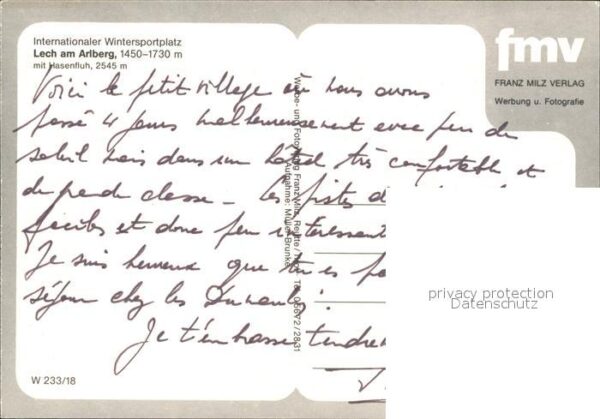 Internationaler Wintersportplatz
Lech am Arlberg, 1450–1730 m
mit Hasenfluh, 2545 m
fmv
FRANZ MILZ VERLAG
Werbung u. Fotografie
Voici le petit village où nous avons
passé 4 jours malheureusement avec peu de
soleil mais dans un hôtel très confortable et
de grande classe - les pistes
faciles et donc peu intéressant
Je suis heureux que tu es
séjour chez les
Je t'embrasse tendre
Werbe- und Fotoverlag Franz Milz, Reutte/Tirol Tel. 05672/2831
Aufnahme: Müller-Brunke
privacy protection
Datenschutz
W 233/18